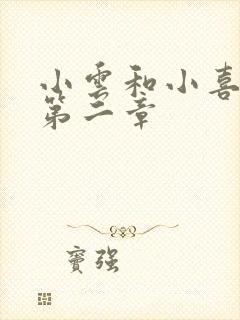 小雲和小喜
第二章
竇强